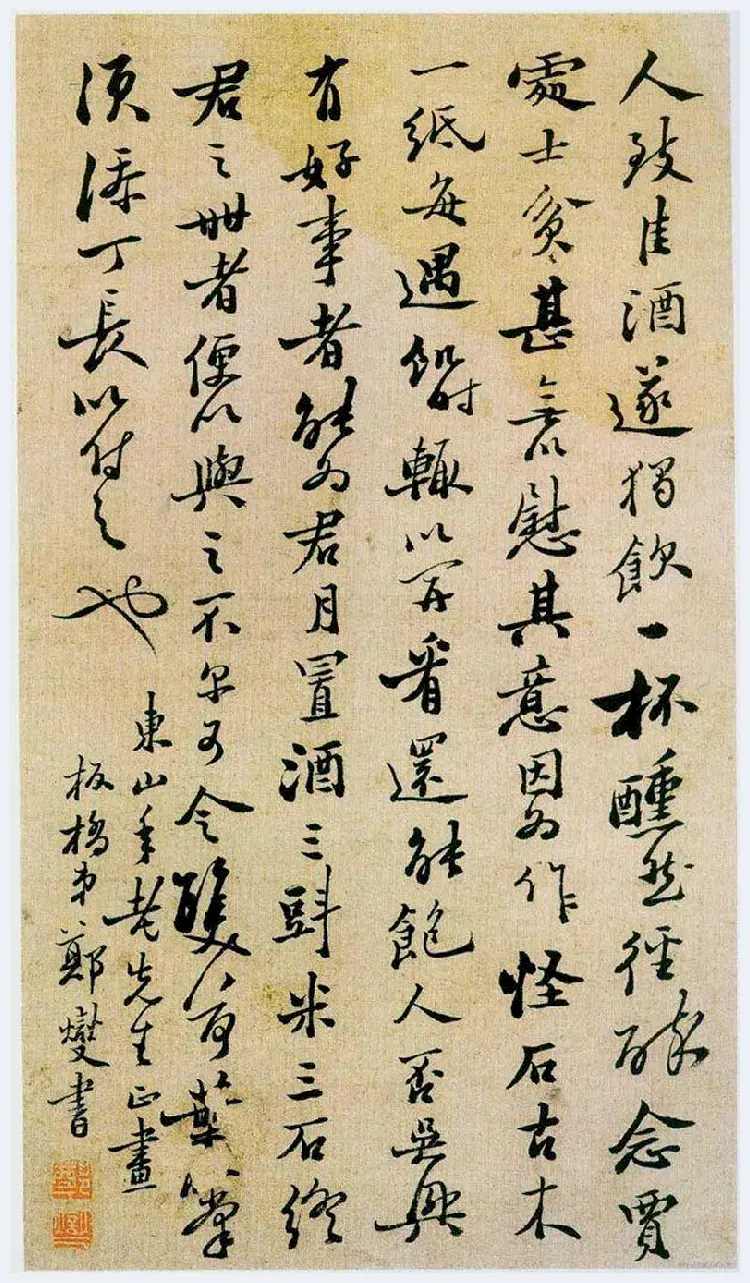 人致佳酒遂獨飲一杯醺然徑醉念賈
處士貧甚無以慰其意因为作怪石古木
一紙每遇飢時輙以開看還能飽人否吳興
有好事者能为君月置酒三㪷米三石終
君之世者便以與之不尔可令雙荷葉掌
須添丁長以付之也
東山年老先生正畫
板橋弟鄭燮書